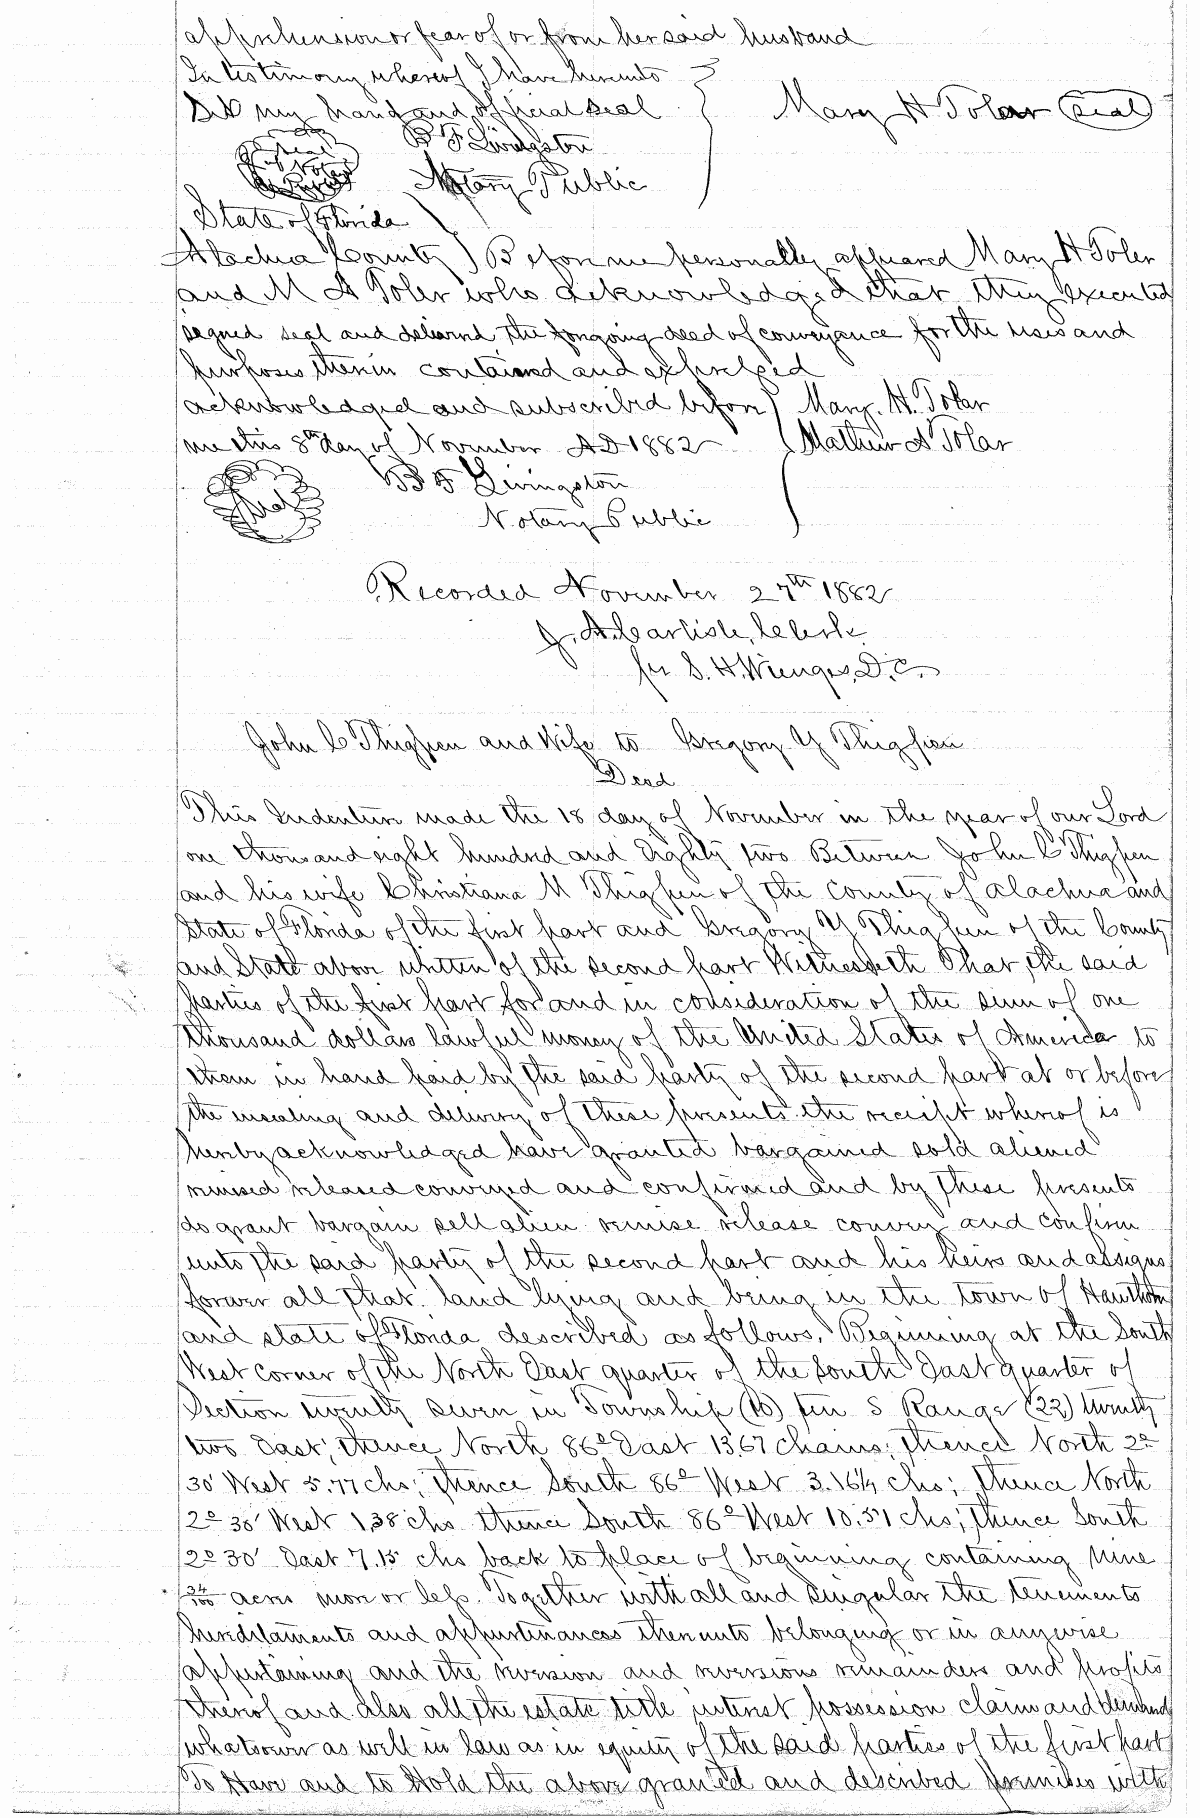 apprehension or fear of or from her said husband
In testimony whereof I have hereunto
Set my hand and official seal Mary H Toler Seal
B F Livingston
Seal
Notary Public
State of Florida
Alachua County Before me personally appeared Mary H Toler
and M A Toler who acknowledged that they executed
signed seal and deliverd the forgoing deed of conveyance for the uses and
purposes therein contained and expressed
acknowledged and subscribed before Mary. H. Tolar
me this 8th day of November AD 1882 Mathew A Tolar
B F Livingston
Seal
Notary Public
Recorded November 27th 1882
J. A. Carlisle, Clerk
per S. H. Wienges, D. C.
John C Thigpen and Wife to Gregory Y Thigpen
Deed
This Indenture made the 18 day of November in the year of our Lord
one thousand eight hundred and Eighty two Between John C Thigpen
and his wife Christiana M Thigpen of the County of Alachua and
State of Florida of the first part and Gregory Y Thigpen of the County
and State above written of the second part Witnesseth That the said
parties of the first part for and in consideration of the sum of one
thousand dollars lawful money of the United States of America to
them in hand paid by the said party of the second part at or before
the ensealing and delivery of these presents the receipt whereof is
hereby acknowledged have granted bargained sold aliened
remised released conveyed and confirmed and by these presents
do grant bargain sell alien remise release convey and confirm
unto the said party of the second part and his heirs and assigns
forever all that land lying and being in the town of Hawthorn
and state of Florida described as follows. Beginning at the South
West corner of the North East quarter of the South East quarter of
Section twenty seven in Township (10) ten S Range (22) twenty
two East; thence North 86° East 13.67 chains; thence North 2°
30' West 5.77 chs; thence South 86° West 3.16¼ chs; thence North
2° 30' West 1.38 chs thence South 86° West 10.51 chs; thence South
2° 30' East 7.15 chs back to place of beginning containing nine
34/100 acres more or less. Together with all and singular the tenements
hereditaments and appurtinances thereunto belonging or in anywise
appertaining and the reversion and reversions remainders and profits
thereof and also all the estate title interest possession claim and demand
whatsoever as well in law as in equity of the said parties of the first part
To Have and to Hold the above granted and described premises with